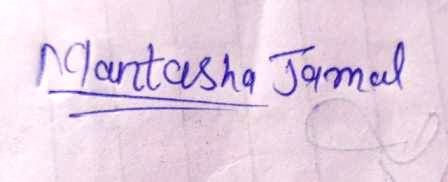 Mantasha Jamal